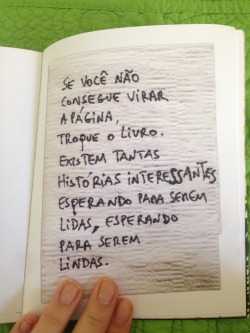 SE VOCÊ NÃO
CONSEGUE VIRAR
A PÁGINA,
TROQUE O LIVRO.
EXISTEM TANTAS
HISTÓRIAS INTERESSANTES
ESPERANDO PARA SEREM
LIDAS, ESPERANDO
PARA SEREM
LINDAS.